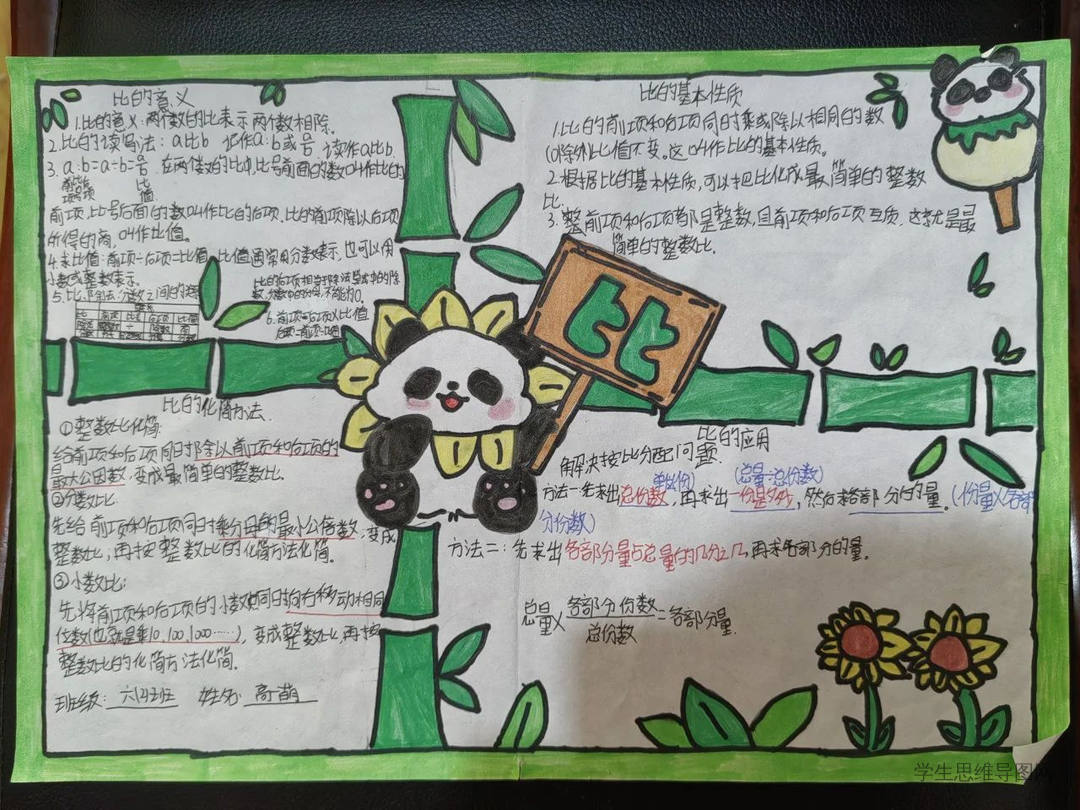 比的意义
1.比的意义:两个数的比表示两个数相除.
2.比的读写法: a比b 记作a:b或 读作a比b.
3. a:b=a÷b= 在两个数的比中,比号前面的数叫作比的
前项 比号 后项
比值
前项,比号后面的数叫作比的后项,比的前项除以后项
所得的商,叫作比值。
4.求比值:前项÷后项=比值,比值通常用分数表示,也可以用
小数或整数表示。
5.比、除法、分数之间的
比的后项相当于除法算式中的除
数,分数中的分母,不能为0。
6.前项=后项×比值
后项=前项÷比值
比的基本性质
1.比的前项和后项同时乘或除以相同的数
(0除外)比值不变。这叫作比的基本性质。
2.根据比的基本性质,可以把比化成最简单的整数
比.
3.整前项和后项都是整数,且前项和后项互质,这就是最
简单的整数比。
比
比的化简方法.
①整数比化简
给前项和后项同时除以前项和后项的
最大公因数,变成最简单的整数比.
②分数比:
先给前项和后项同时乘分母的最小公倍数,变成
整数比,再按整数比的化简方法化简。
③小数比:
先将前项和后项的小数点同时向右移动相同
位数(也就是乘10,100,1000……),变成整数比,再按
整数比的化简方法化简.
班级: 六四班 姓名: 高萌
比的应用
解决按比分配问题.
(单位份) (总量÷总份数)
方法一:先求出总份数,再求出一份是多少,然后求各部分的量。(一份量×各部
分份数)
方法二:先求出各部分量占总量的几分之几,再求各部分的量。
总量×各部分份数/总份数=各部分量.
学生思维导图网